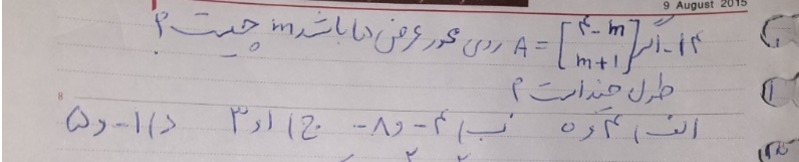 9 August 2015
۱۴- اگر A = [۴-m m+1] روی محور عرض ها باشد m چیست ؟
طول چند است ؟
الف) ۴ و ۵ ب) ۴- و ۸- ج) ۱ و ۳ د) ۱- و ۵